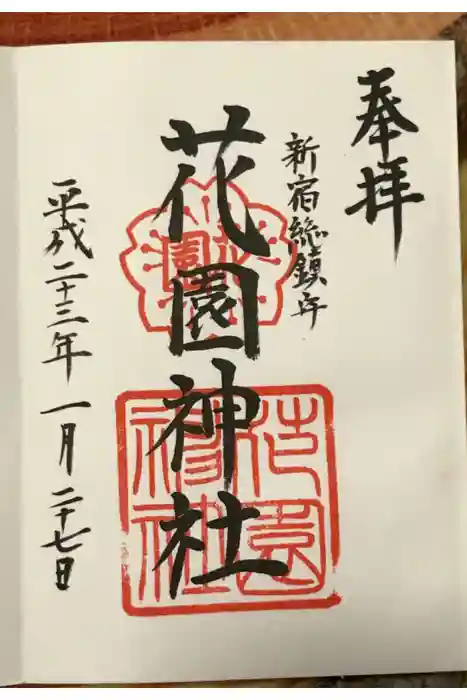 奉拝
新宿総鎮守
花園神社
花園神社
平成二十三年一月二十七日